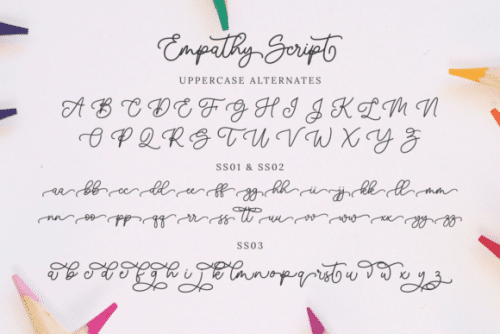 Empathy Script
UPPERCASE ALTERNATES
A B C D E F G H I J K L M N
O P Q R S T U V W X Y Z
SS01 & SS02
aa bb cc dd ee ff gg hh ii jj kk ll mm
nn oo pp qq rr ss tt uu vv ww xx yy zz
SS03
a b c d e f g h i j k l m n o p q r s t u v w x y z